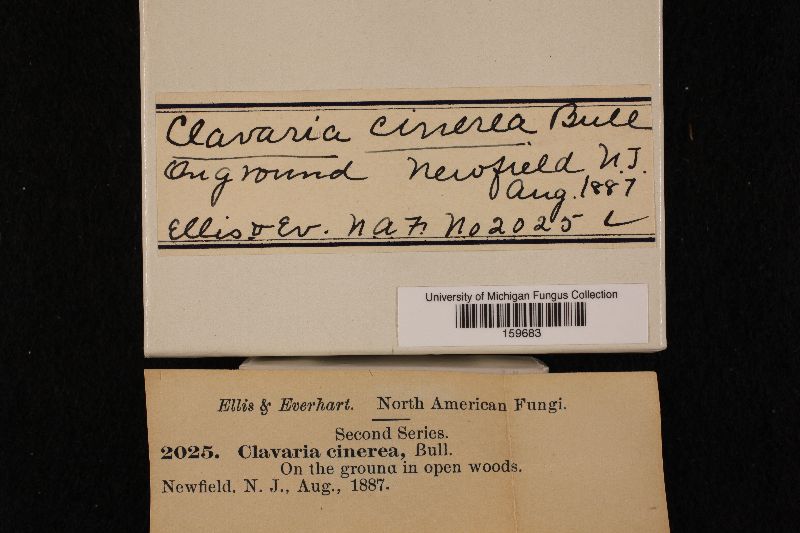 Clavaria cinerea Bull
On ground Newfield N.J.
Aug. 1887
Ellis & Ev. N A F. No 2025 L
University of Michigan Fungus Collection
159683
Ellis & Everhart. North American Fungi.
Second Series.
2025. Clavaria cinerea, Bull.
On the ground in open woods.
Newfield, N. J., Aug., 1887.